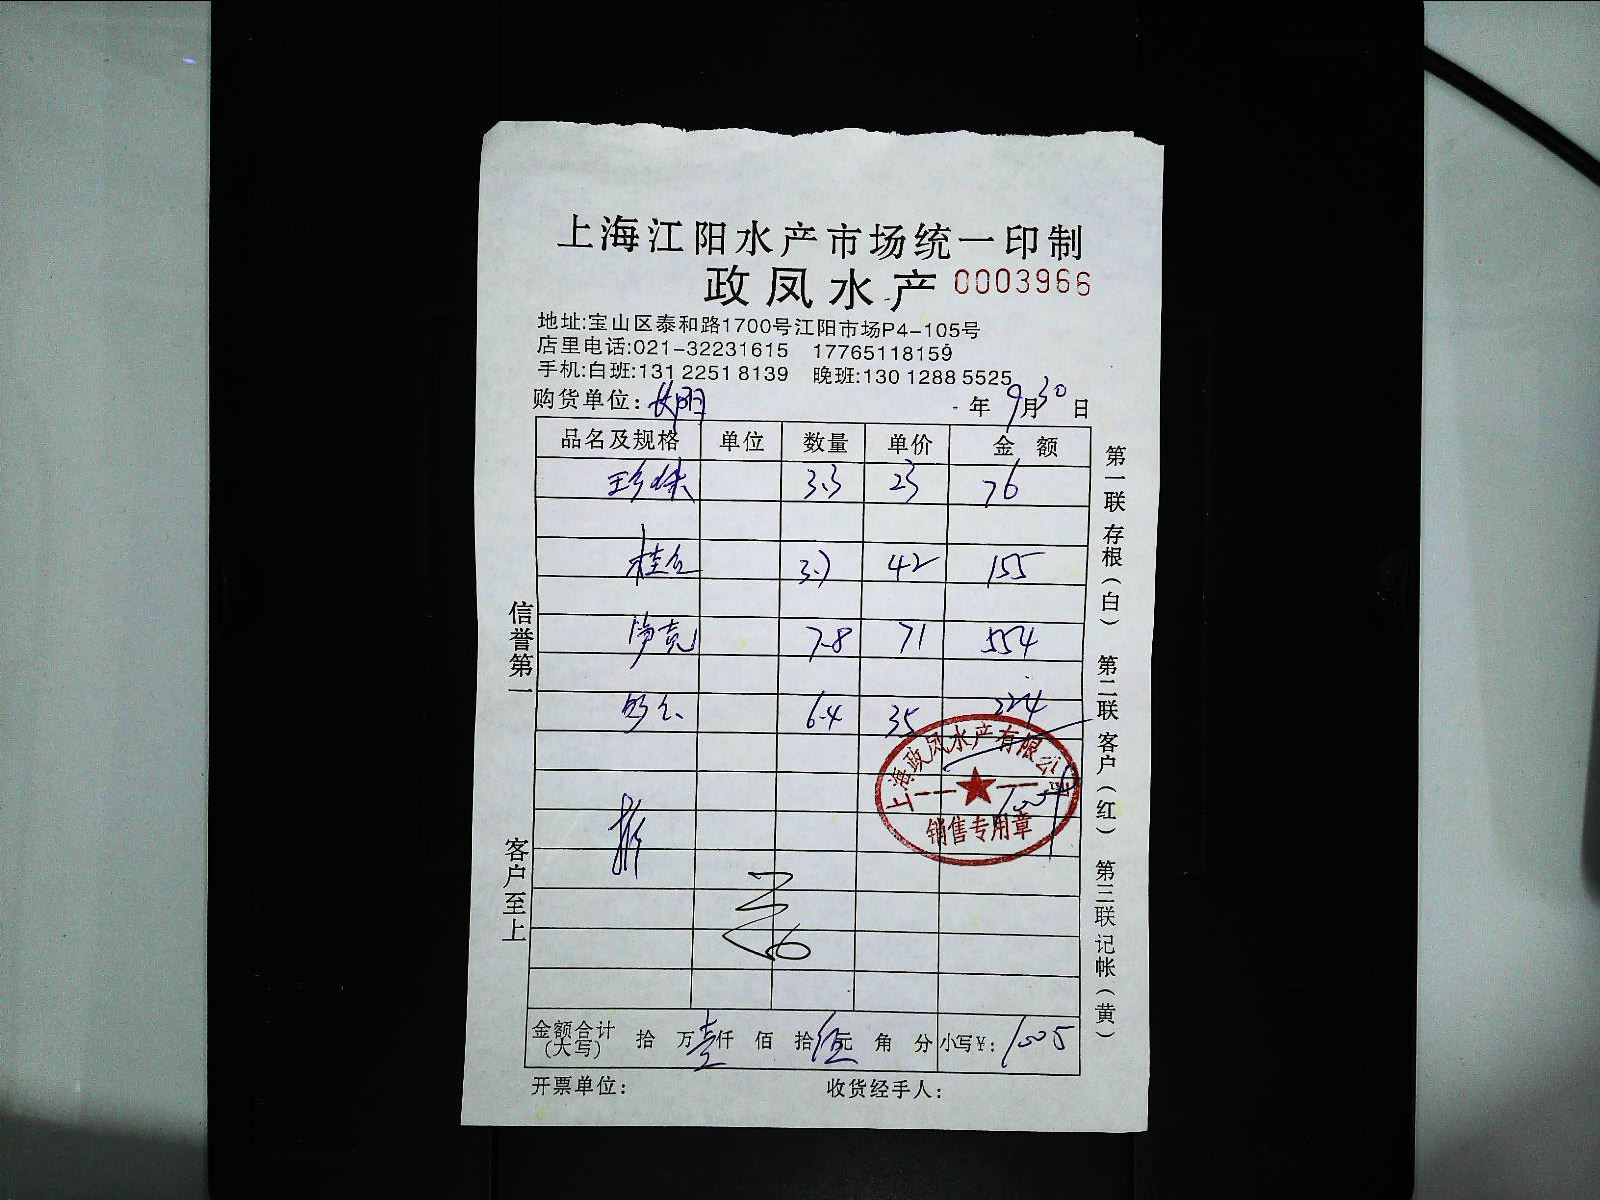 上海江阳水产市场统一印制
政凤水产 0003966
地址:宝山区泰和路1700号江阳市场P4-105号
店里电话:021-32231615 17765118159
手机:白班:131 2251 8139 晚班:130 1288 5525
购货单位: 年 9月30日
品名及规格 单位 数量 单价 金额
珍珠 3.3 23 76
桂鱼 3.7 42 155
7.8 71 554
6.4 35 224
上海政凤水产有限公司
销售专用章
1009
金额合计(大写) 拾 万 壹仟 佰 拾 伍元 角 分 小写¥: 1005
开票单位: 收货经手人:
信誉第一
客户至上
第一联存根(白) 第二联客户(红) 第三联记帐(黄)